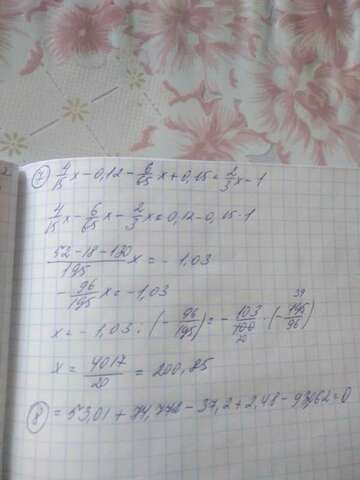 7) 4/15 x - 0,12 - 6/65 x + 0,15 = 2/3 x - 1
4/15 x - 6/65 x - 2/3 x = 0,12 - 0,15 - 1
(52 - 18 - 130)/195 x = - 1,03
- 96/195 x = -1,03
x = - 1,03 · (- 96/195) = - 103/100 · (- 195/96)
39
20
x = 4017/20 = 200,85
8) = 53,01 + 74,772 - 37,2 + 2,48 - 93,062 = 0